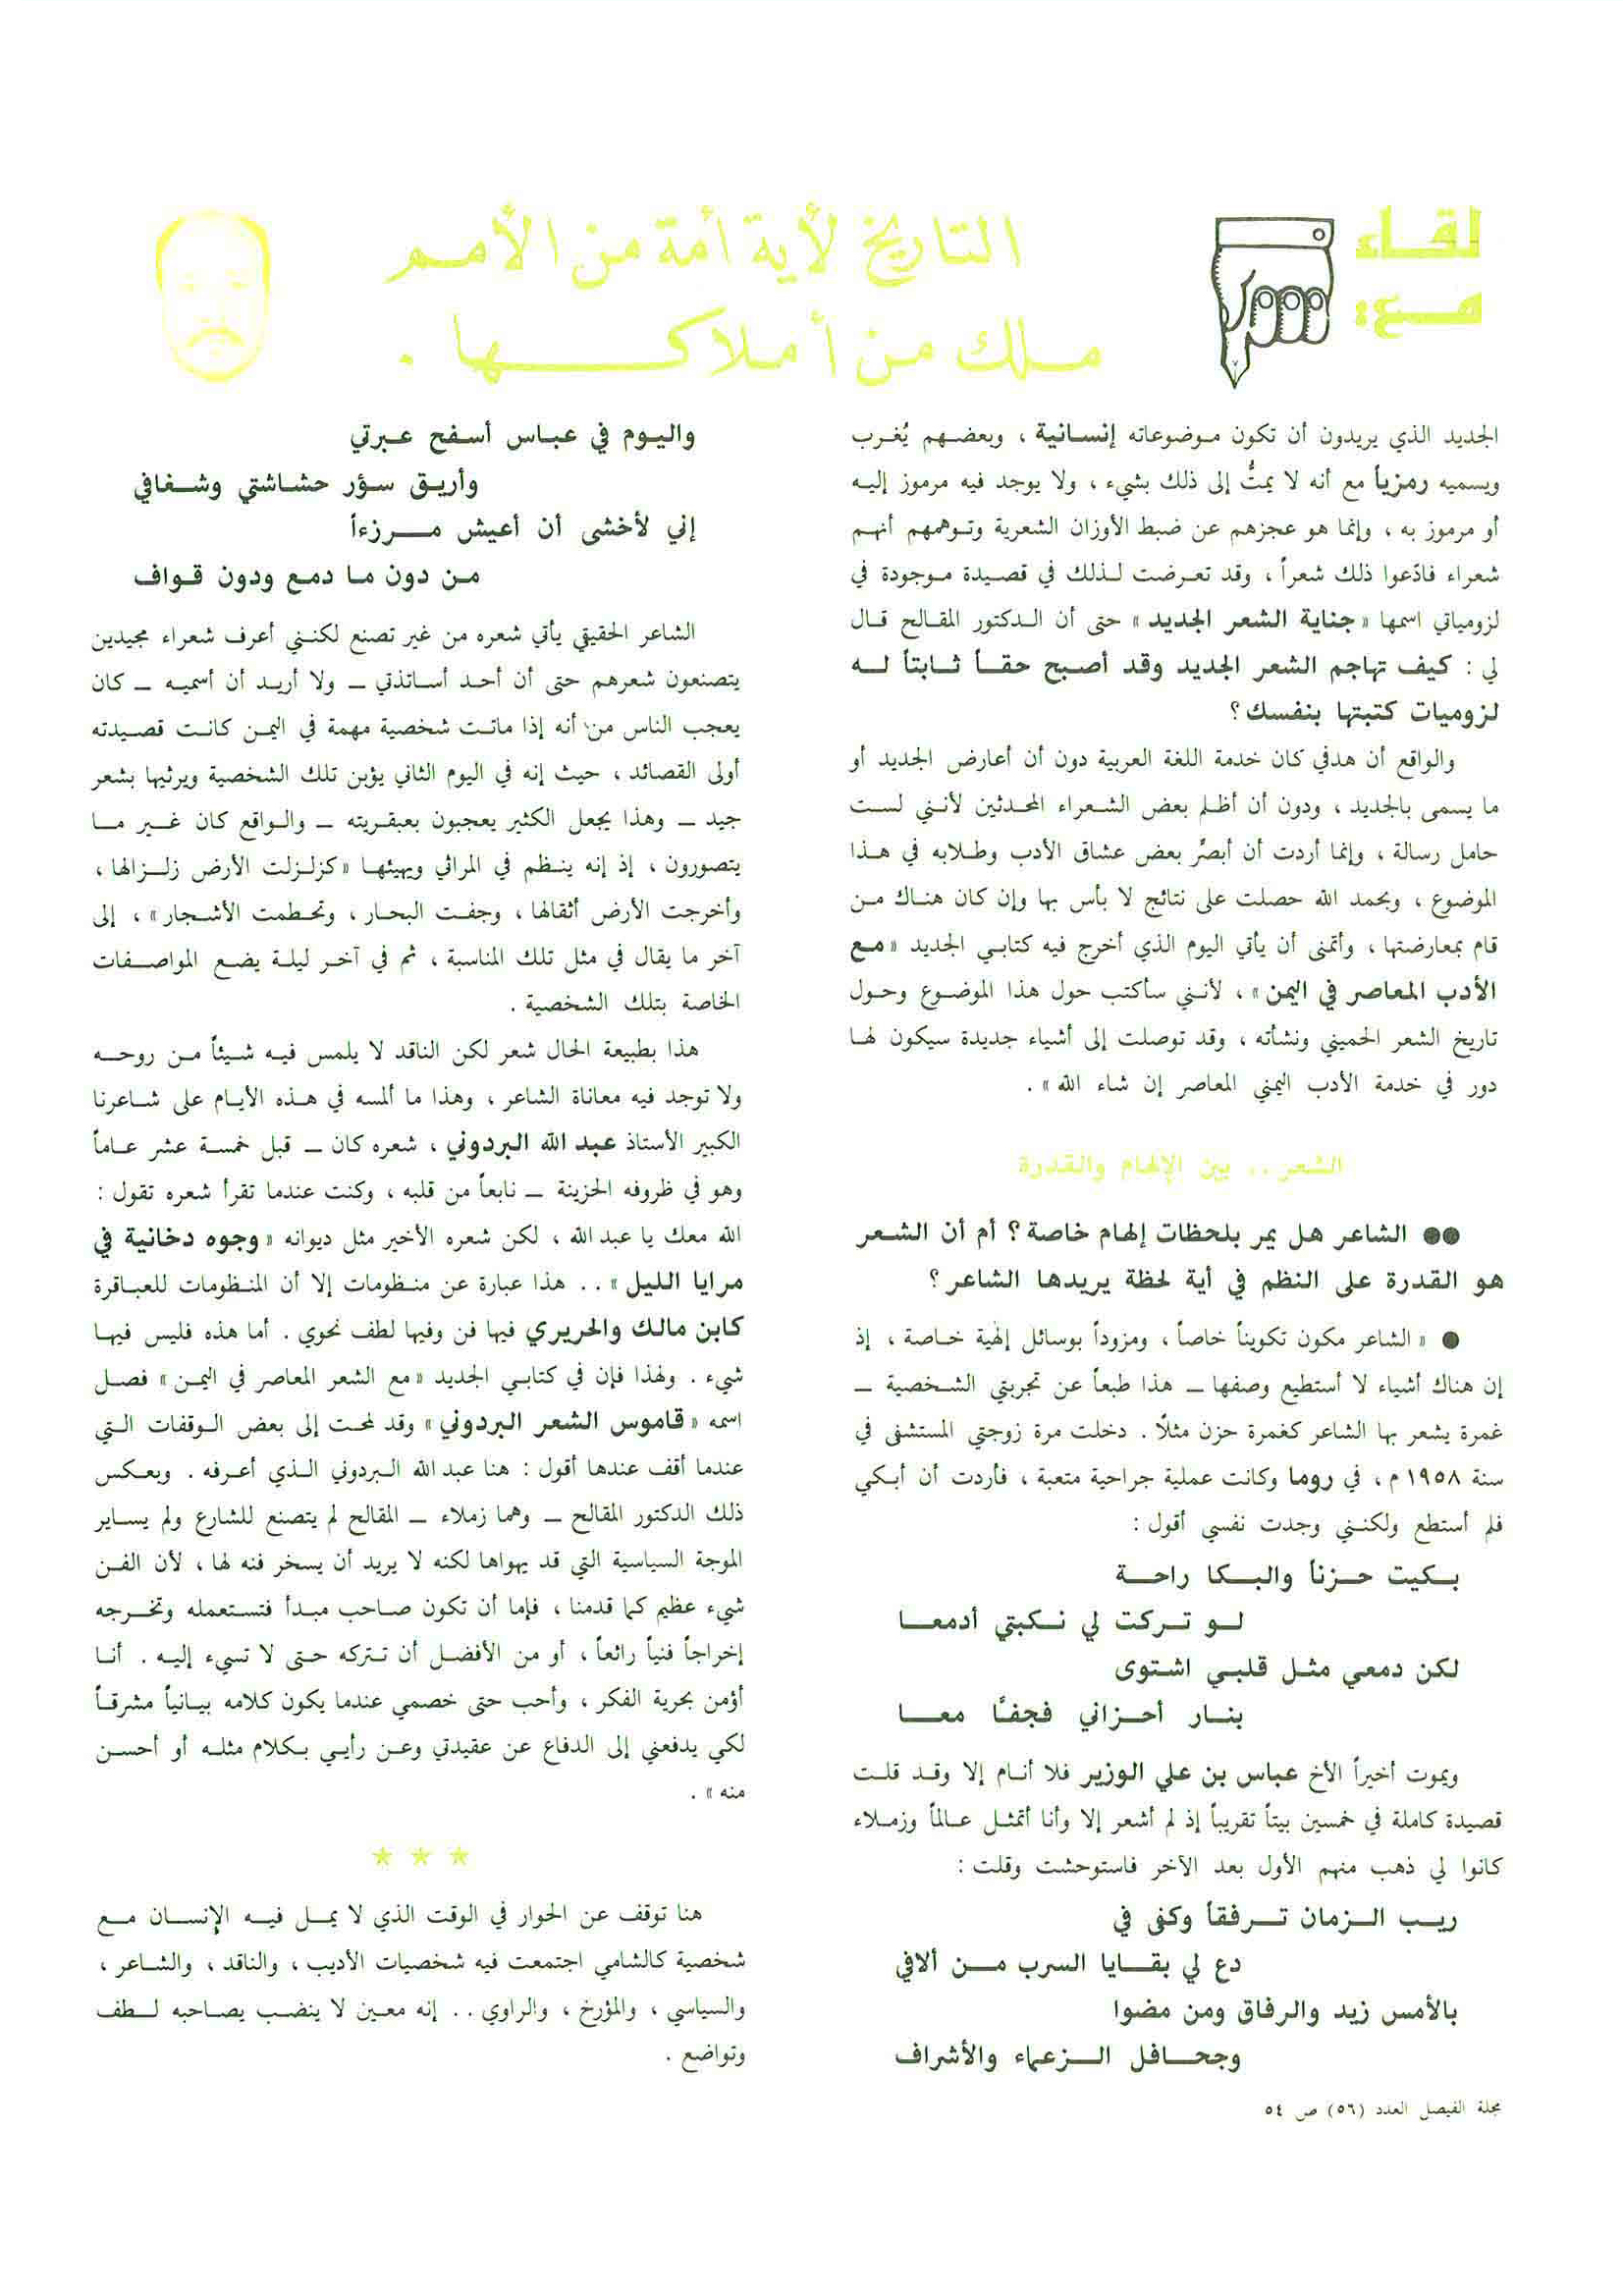 لقاء
مع:
التاريخ لأية أمة من الأمم
ملك من أملاكها .
الجديد الذي يريدون أن تكون موضوعاته إنسانية ، وبعضهم يُغرب
ويسميه رمزياً مع أنه لا يمتُّ إلى ذلك بشيء ، ولا يوجد فيه مرموز إليه
أو مرموز به ، وإنما هو عجزهم عن ضبط الأوزان الشعرية وتوهمهم أنهم
شعراء فادّعوا ذلك شعراً ، وقد تعرضت لذلك في قصيدة موجودة في
لزومياتي اسمها « جناية الشعر الجديد » حتى أن الدكتور المقالح قال
لي : كيف تهاجم الشعر الجديد وقد أصبح حقاً ثابتاً له
لزوميات كتبتها بنفسك ؟
والواقع أن هدفي كان خدمة اللغة العربية دون أن أعارض الجديد أو
ما يسمى بالجديد ، ودون أن أظلم بعض الشعراء المحدثين لأنني لست
حامل رسالة ، وإنما أردت أن أبصِّر بعض عشاق الأدب وطلابه في هذا
الموضوع ، وبحمد الله حصلت على نتائج لا بأس بها وإن كان هناك من
قام بمعارضتها ، وأتمنى أن يأتي اليوم الذي أخرج فيه كتابي الجديد « مع
الأدب المعاصر في اليمن » ، لأنني سأكتب حول هذا الموضوع وحول
تاريخ الشعر الحميني ونشأته ، وقد توصلت إلى أشياء جديدة سيكون لها
دور في خدمة الأدب اليمني المعاصر إن شاء الله » .
الشعر .. بين الإلهام والقدرة
●● الشاعر هل يمر بلحظات إلهام خاصة ؟ أم أن الشعر
هو القدرة على النظم في أية لحظة يريدها الشاعر ؟
● « الشاعر مكون تكويناً خاصاً ، ومزوداً بوسائل إلهية خاصة ، إذ
إن هناك أشياء لا أستطيع وصفها ـ هذا طبعاً عن تجربتي الشخصية ـ
غمرة يشعر بها الشاعر كغمرة حزن مثلاً . دخلت مرة زوجتي المستشفى في
سنة ١٩٥٨ م ، في روما وكانت عملية جراحية متعبة ، فأردت أن أبكي
فلم أستطع ولكنني وجدت نفسي أقول :
بكيت حزناً والبكا راحة
لو تركت لي نكبتي أدمعا
لكن دمعي مثل قلبي اشتوى
بنار أحزاني فجفّا معا
ويموت أخيراً الأخ عباس بن علي الوزير فلا أنام إلا وقد قلت
قصيدة كاملة في خمسين بيتاً تقريباً إذ لم أشعر إلا وأنا أتمثل عالماً وزملاء
كانوا لي ذهب منهم الأول بعد الآخر فاستوحشت وقلت :
ريب الزمان ترفقاً وكفى في
دع لي بقايا السرب من ألافي
بالأمس زيد والرفاق ومن مضوا
وجحافل الزعماء والأشراف
مجلة الفيصل العدد (٥٦) ص ٥٤
واليوم في عباس أسفح عبرتي
وأريق سؤر حشاشتي وشغافي
إني لأخشى أن أعيش مرزءاً
من دون ما دمع ودون قواف
الشاعر الحقيقي يأتي شعره من غير تصنع لكنني أعرف شعراء مجيدين
يتصنعون شعرهم حتى أن أحد أساتذتي ـ ولا أريد أن أسميه ـ كان
يعجب الناس من أنه إذا ماتت شخصية مهمة في اليمن كانت قصيدته
أولى القصائد ، حيث إنه في اليوم الثاني يؤبن تلك الشخصية ويرثيها بشعر
جيد ـ وهذا يجعل الكثير يعجبون بعبقريته ـ والواقع كان غير ما
يتصورون ، إذ إنه ينظم في المراثي ويهيئها « كزلزلت الأرض زلزالها ،
وأخرجت الأرض أثقالها ، وجفت البحار ، وتحطمت الأشجار » ، إلى
آخر ما يقال في مثل تلك المناسبة ، ثم في آخر ليلة يضع المواصفات
الخاصة بتلك الشخصية .
هذا بطبيعة الحال شعر لكن الناقد لا يلمس فيه شيئاً من روحه
ولا توجد فيه معاناة الشاعر ، وهذا ما ألمسه في هذه الأيام على شاعرنا
الكبير الأستاذ عبد الله البردوني ، شعره كان ـ قبل خمسة عشر عاماً
وهو في ظروفه الحزينة ـ نابعاً من قلبه ، وكنت عندما تقرأ شعره تقول :
الله معك يا عبد الله ، لكن شعره الأخير مثل ديوانه « وجوه دخانية في
مرايا الليل » .. هذا عبارة عن منظومات إلا أن المنظومات للعباقرة
كابن مالك والحريري فيها فن وفيها لطف نحوي . أما هذه فليس فيها
شيء . ولهذا فإن في كتابي الجديد « مع الشعر المعاصر في اليمن » فصل
اسمه « قاموس الشعر البردوني » وقد لمحت إلى بعض الوقفات التي
عندما أقف عندها أقول : هنا عبد الله البردوني الذي أعرفه . وبعكس
ذلك الدكتور المقالح ـ وهما زملاء ـ المقالح لم يتصنع للشارع ولم يساير
الموجة السياسية التي قد يهواها لكنه لا يريد أن يسخر فنه لها ، لأن الفن
شيء عظيم كما قدمنا ، فإما أن تكون صاحب مبدأ فتستعمله وتخرجه
إخراجاً فنياً رائعاً ، أو من الأفضل أن تتركه حتى لا تسيء إليه . أنا
أؤمن بحرية الفكر ، وأحب حتى خصمي عندما يكون كلامه بيانياً مشرقاً
لكي يدفعني إلى الدفاع عن عقيدتي وعن رأيي بكلام مثله أو أحسن
منه » .
★ ★ ★
هنا توقف عن الحوار في الوقت الذي لا يمل فيه الإنسان مع
شخصية كالشامي اجتمعت فيه شخصيات الأديب ، والناقد ، والشاعر ،
والسياسي ، والمؤرخ ، والراوي .. إنه معين لا ينضب يصاحبه لطف
وتواضع .